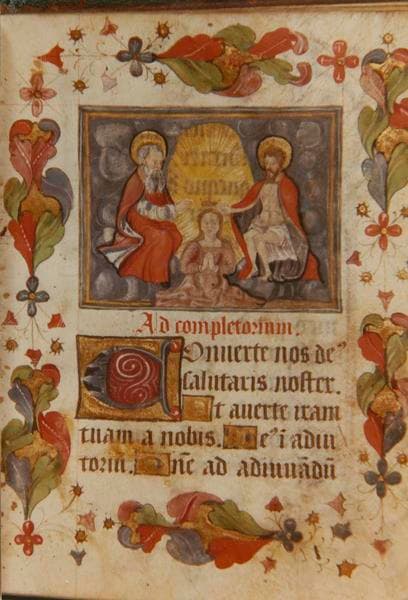 Ad completorium.
Conuerte nos de⁹
salutaris noster.
Et auerte iram
tuam a nobis. De⁹ ĩ adiu
toriũ. Dñe ad adiuuãdũ